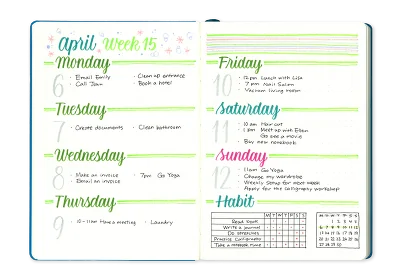 April Week 15
Monday
6
• Email Emily
• Call Joan
• Clean up entrance
• Book a hotel
Tuesday
7
• Create documents
• Clean bathroom
Wednesday
8
• Make an invoice
Email an invoice
• 7pm Go Yoga
Thursday
9
• 10-11am Have a meeting
• Laundry
Friday
10
• 12pm Lunch with Lisa
• 7pm Nail Salon
• Vacuum living room
Saturday
11
• 10am Haircut
• 1pm Meet up with Eben
Go see a movie
• Buy new notebook
Sunday
12
• 11am Go Yoga
Change my wardrobe
• Weekly Setup for next week
• Apply for the calligraphy workshop
Habit
M T W T F S S
Read book
Write a journal
Do exercises
Practice Calligraphy
Take a notebook home
M T W T F S S
1 2 3 4 5
6 7 8 9 10 11 12
13 14 15 16 17 18 19
20 21 22 23 24 25 26
27 28 29 30